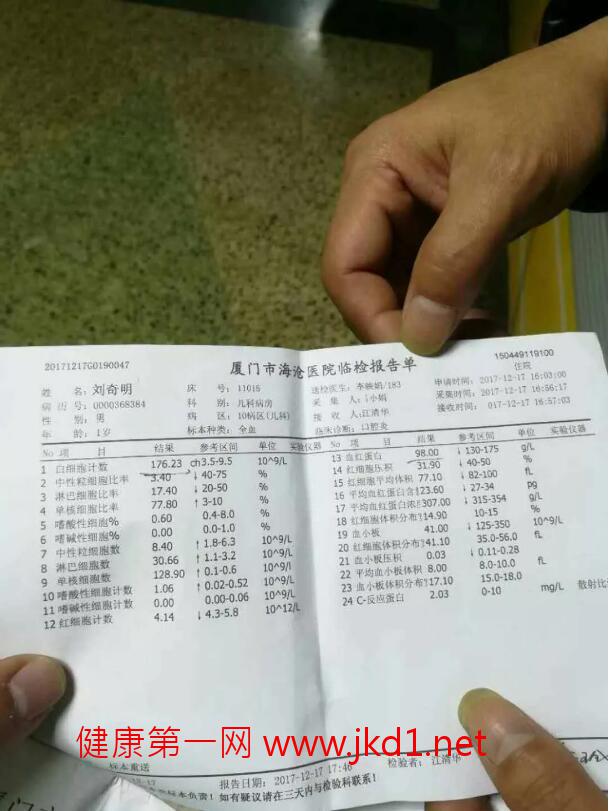 20171217G0190047
厦门市海沧医院临检报告单
150449119100
住院
姓 名: 刘奇明
床 号: 11015
送检医生: 李映娟/183
申请时间: 2017-12-17 16:03:00
病 历 号: 0000368384
科 别: 儿科病房
采 集 人: 小娟
采集时间: 2017-12-17 16:56:17
性 别: 男
病 区: 10病区(儿科)
接 收 人: 江清华
接收时间: 017-12-17 16:57:03
年 龄: 1岁
标本种类: 全血
临床诊断: 口腔炎
No 项 目 结果 参考区间 单位 实验仪器
1 白细胞计数 176.23 ch3.5-9.5 10^9/L
2 中性粒细胞比率 3.40 ↓40-75 %
3 淋巴细胞比率 17.40 ↓20-50 %
4 单核细胞比率 77.80 ↑3-10 %
5 嗜酸性细胞% 0.60 0.4-8.0 %
6 嗜碱性细胞% 0.00 0.0-1.0 %
7 中性粒细胞数 8.40 ↑1.8-6.3 10^9/L
8 淋巴细胞数 30.66 ↑1.1-3.2 10^9/L
9 单核细胞数 128.90 ↑0.1-0.6 10^9/l
10 嗜酸性细胞计数 1.06 ↑0.02-0.52 10^9/L
11 嗜碱性细胞计数 0.00 0.00-0.06 10^9/L
12 红细胞计数 4.14 ↓4.3-5.8 10^12/L
No 项 目 结果 参考区间 单位 实验仪器
13 血红蛋白 98.00 ↓130-175 g/L
14 红细胞压积 31.90 ↓40-50 %
15 红细胞平均体积 77.10 ↓82-100 fL
16 平均血红蛋白含 23.60 ↓27-34 pg
17 平均血红蛋白浓 307.00 ↓315-354 g/L
18 红细胞体积分布 14.90 10-15 %
19 血小板 41.00 ↓125-350 10^9/L
20 红细胞体积分布 41.10 35.0-56.0 fL
21 血小板压积 0.03 ↓0.11-0.28
22 平均血小板体积 8.00 8.0-10.0 fL
23 血小板体积分布 17.10 15.0-18.0
24 C-反应蛋白 2.03 0-10 mg/L 散射比
健康第一网 www.jkd1.net
标本重送
报告日期: 2017-12-17 17:46
检验者: 江清华
标本负责! 如有疑议请在三天内与检验科联系!